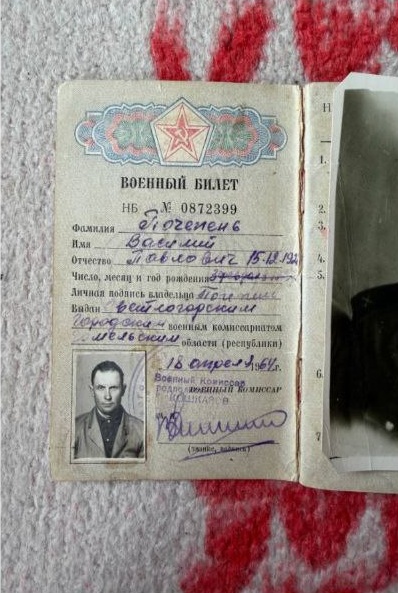 ВОЕННЫЙ БИЛЕТ
НБ № 0872399
Фамилия Почепень
Имя Василий
Отчество Павлович 15.12.192
Число, месяц и год рождения
Личная подпись владельца
Выдан Светлогорским
Городским военным комиссариатом
Гомельским области (республики)
18 апреля 1964 г.
Военный Комиссар
ВОЕННЫЙ КОМИССАР
КОШКАРОВ
(звание, подпись)
Н
1.
2.
3.
4.
5.
6.
7